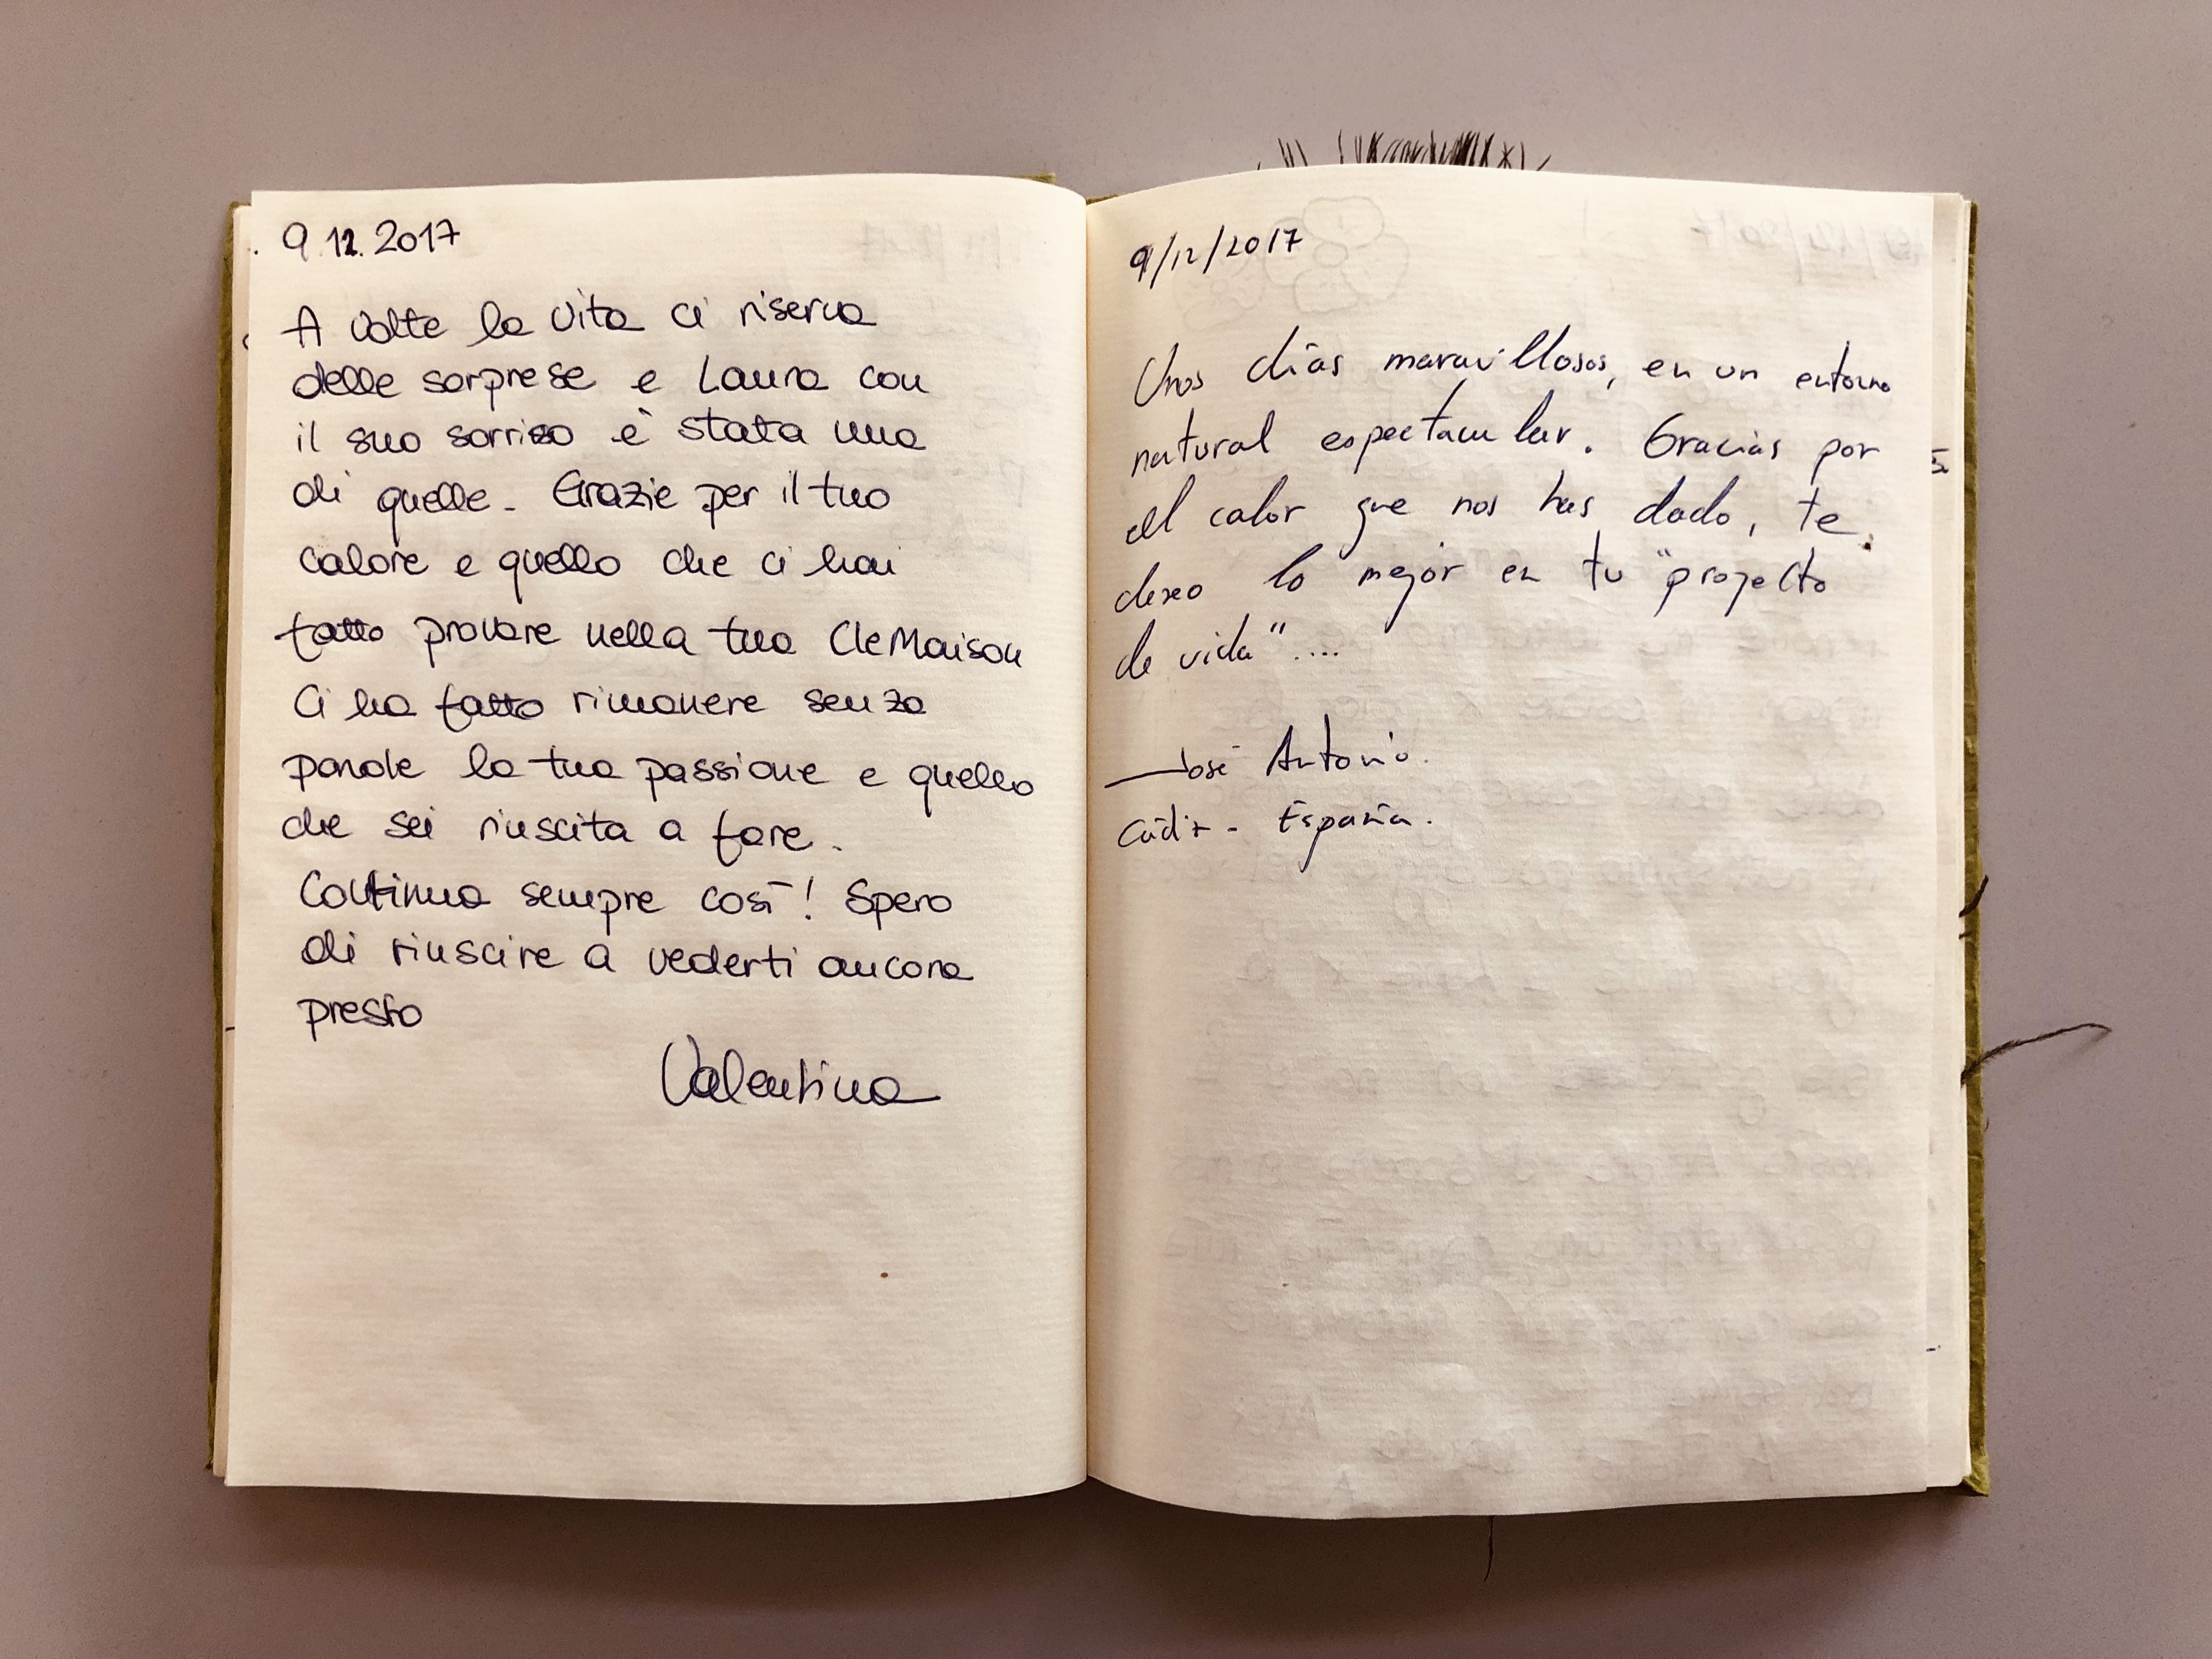 9.12.2017
A volte la vita ci riserva
delle sorprese e Laura con
il suo sorriso è stata una
di quelle. Grazie per il tuo
calore e quello che ci hai
fatto provare nella tua CleMaison
Ci ha fatto rimanere senza
parole la tua passione e quello
che sei riuscita a fare.
Continua sempre così! Spero
di riuscire a vederti ancora
presto
Valentina
9/12/2017
Unos días maravillosos, en un entorno
natural espectacular. Gracias por
el calor que nos has dado, te
deseo lo mejor en tu "proyecto
de vida"....
José Antonio.
Cádiz - España.